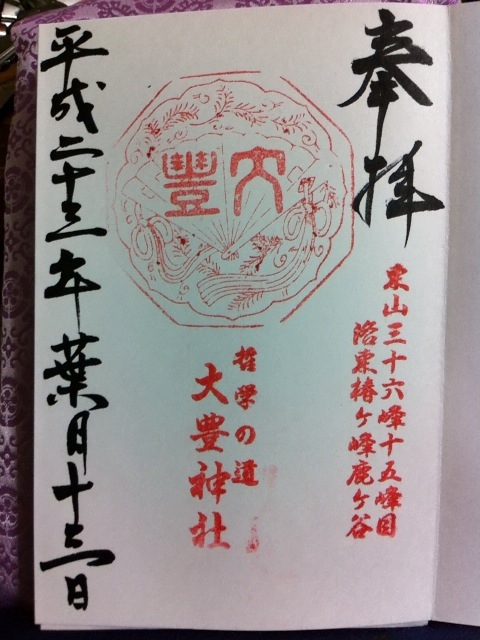 奉拝
東山三十六峰十五峰目
洛東椿ヶ峰鹿ヶ谷
大豊
哲学の道
大豊神社
平成二十三年葉月十二日